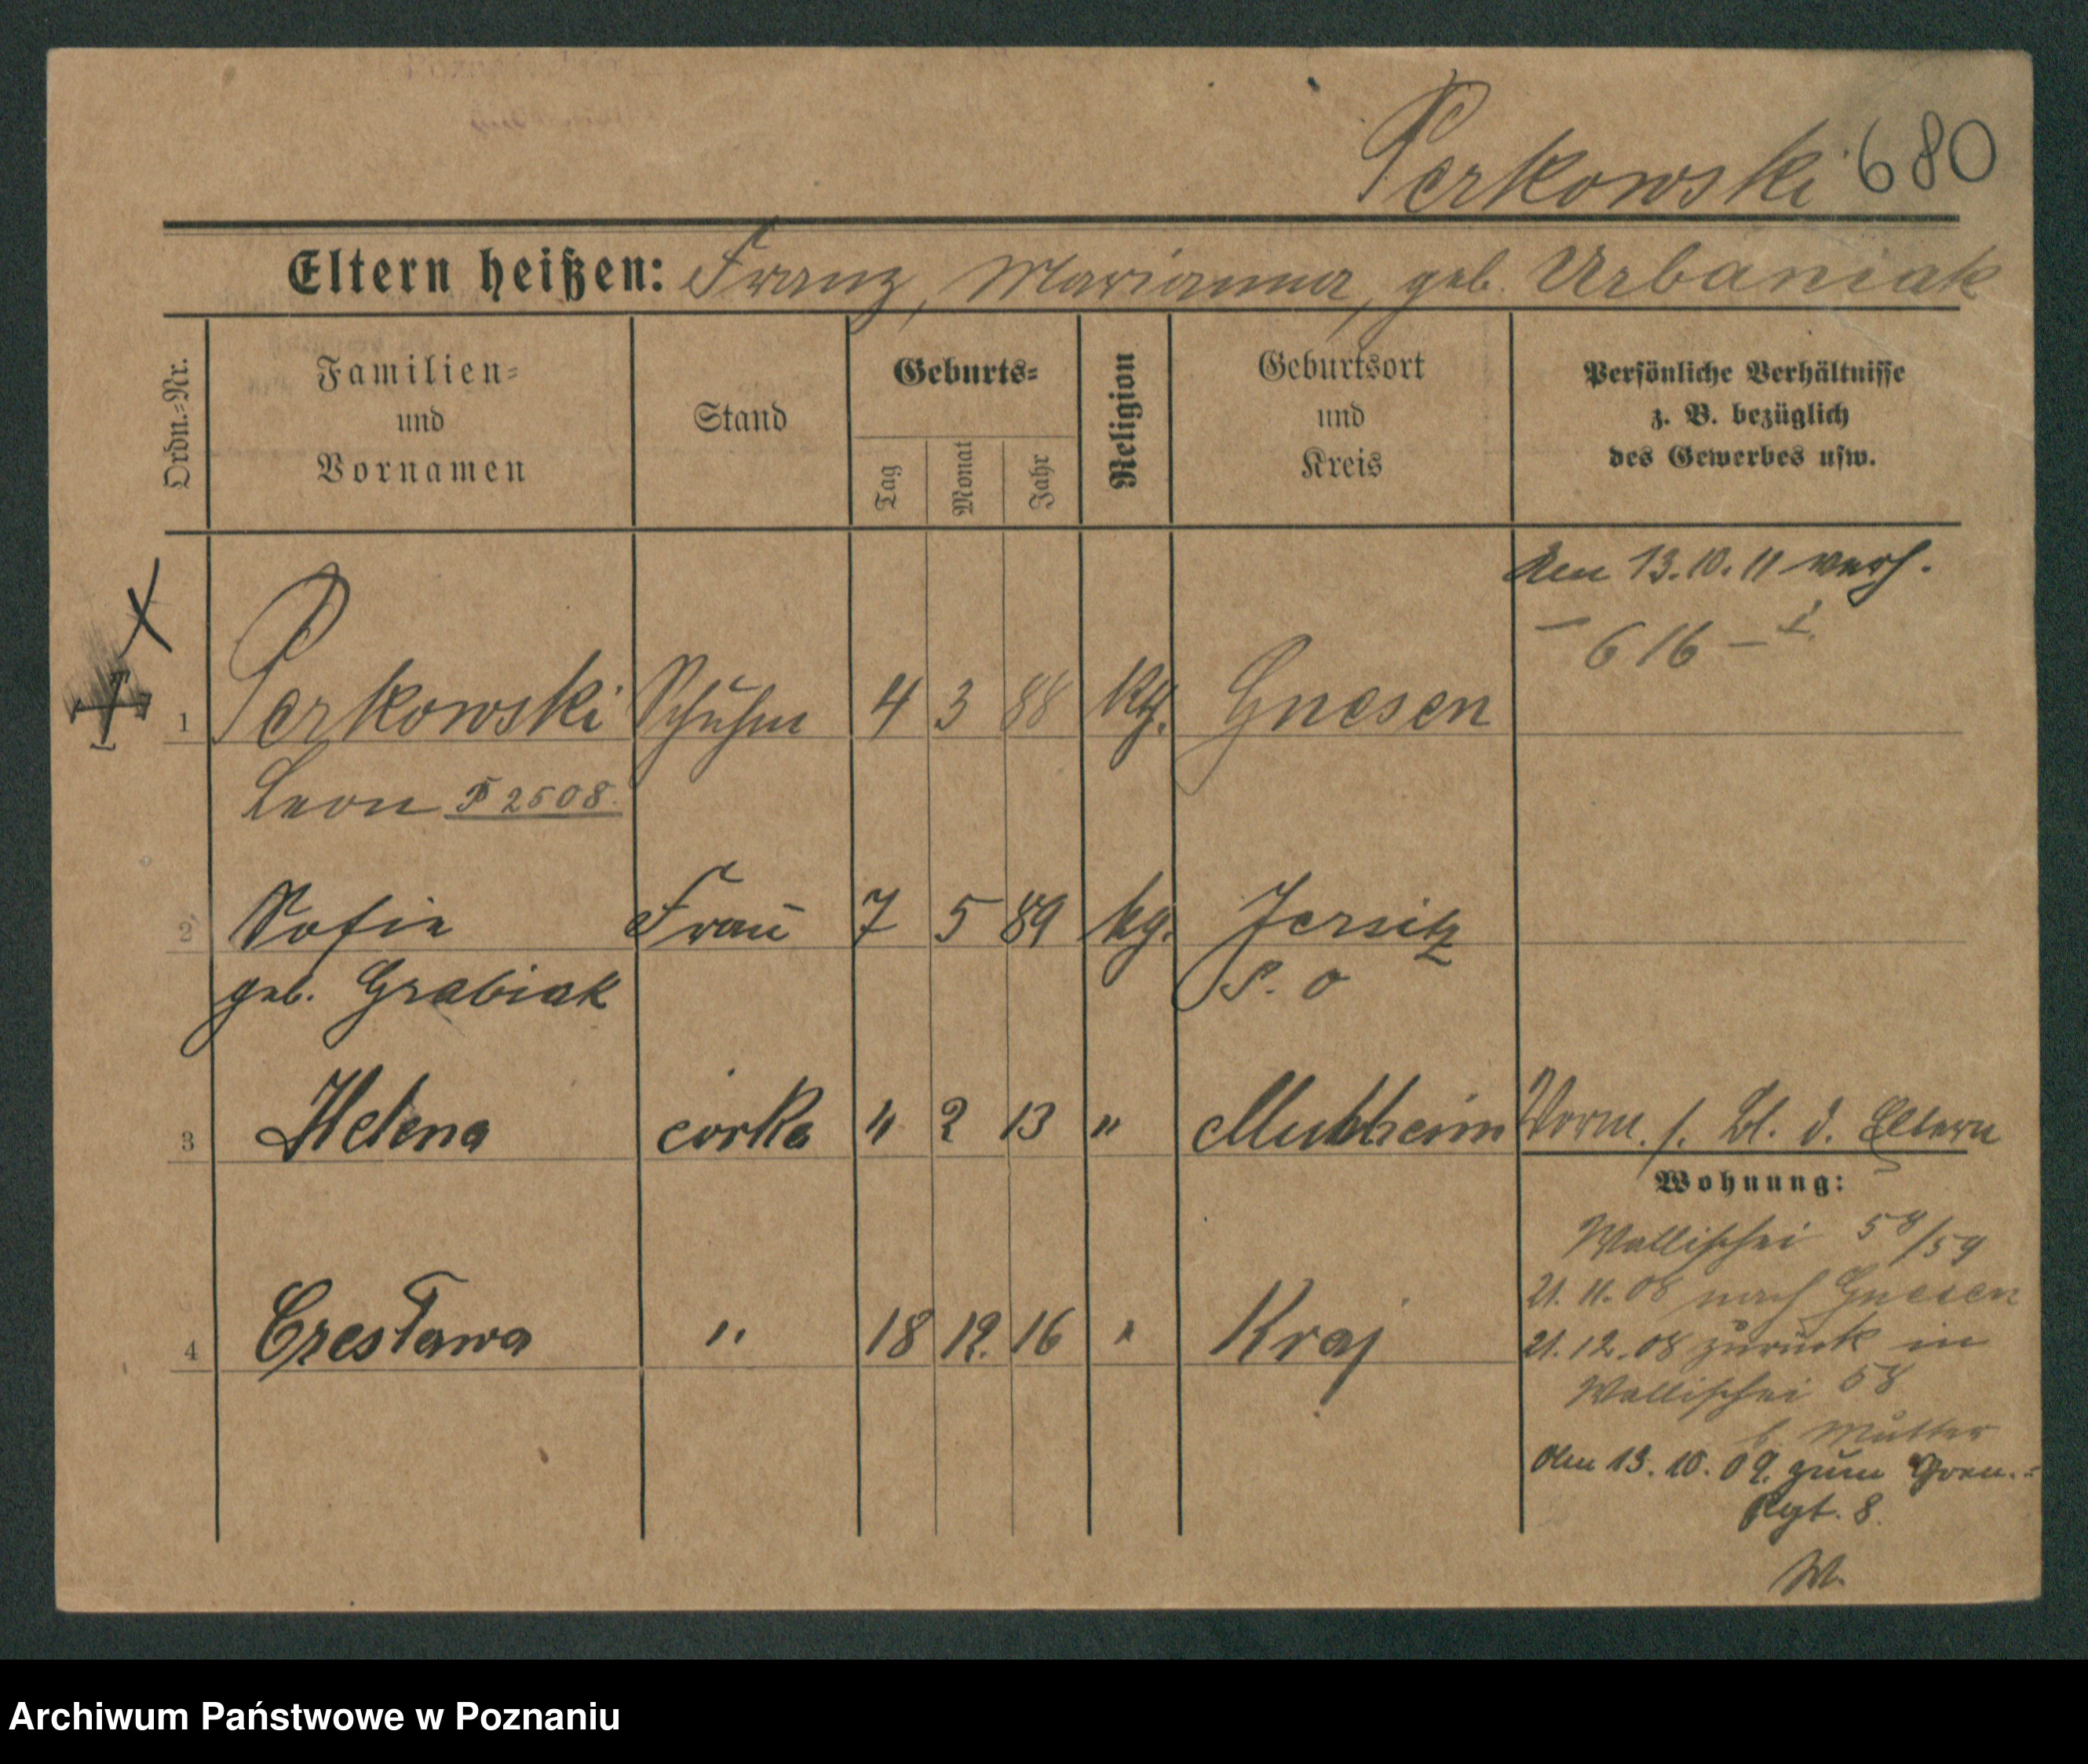 Perkowski 680
Eltern heißen: Franz, Marianna, geb. Urbaniak
Ordn.-Nr.
Familien=
und
Vornamen
Stand
Geburts=
Tag
Monat
Jahr
Religion
Geburtsort
und
Kreis
Persönliche Verhältnisse
z. B. bezüglich
des Gewerbes usw.
Am 13.10.11 verh.
– 616 –
1 Perkowski Schuhm 4 3 88 ktg. Gnesen
Leon P 2508.
2 Sofie Frau 7 5 89 kg. Jersitz
geb. Grabiak P. O
3 Helena córka 4 2 13 " Mubheim Vorm. s. Bl. d. Eltern
Wohnung:
Wallischei 58/59
21.11.08 nach Gnesen
4 Czesława " 18 12. 16 " Kraj
21.12.08 zurück in
Wallischei 58
b. Mutter
Am 13.10.09. zum Gren.=
Rgt. 8.
W.
Archiwum Państwowe w Poznaniu